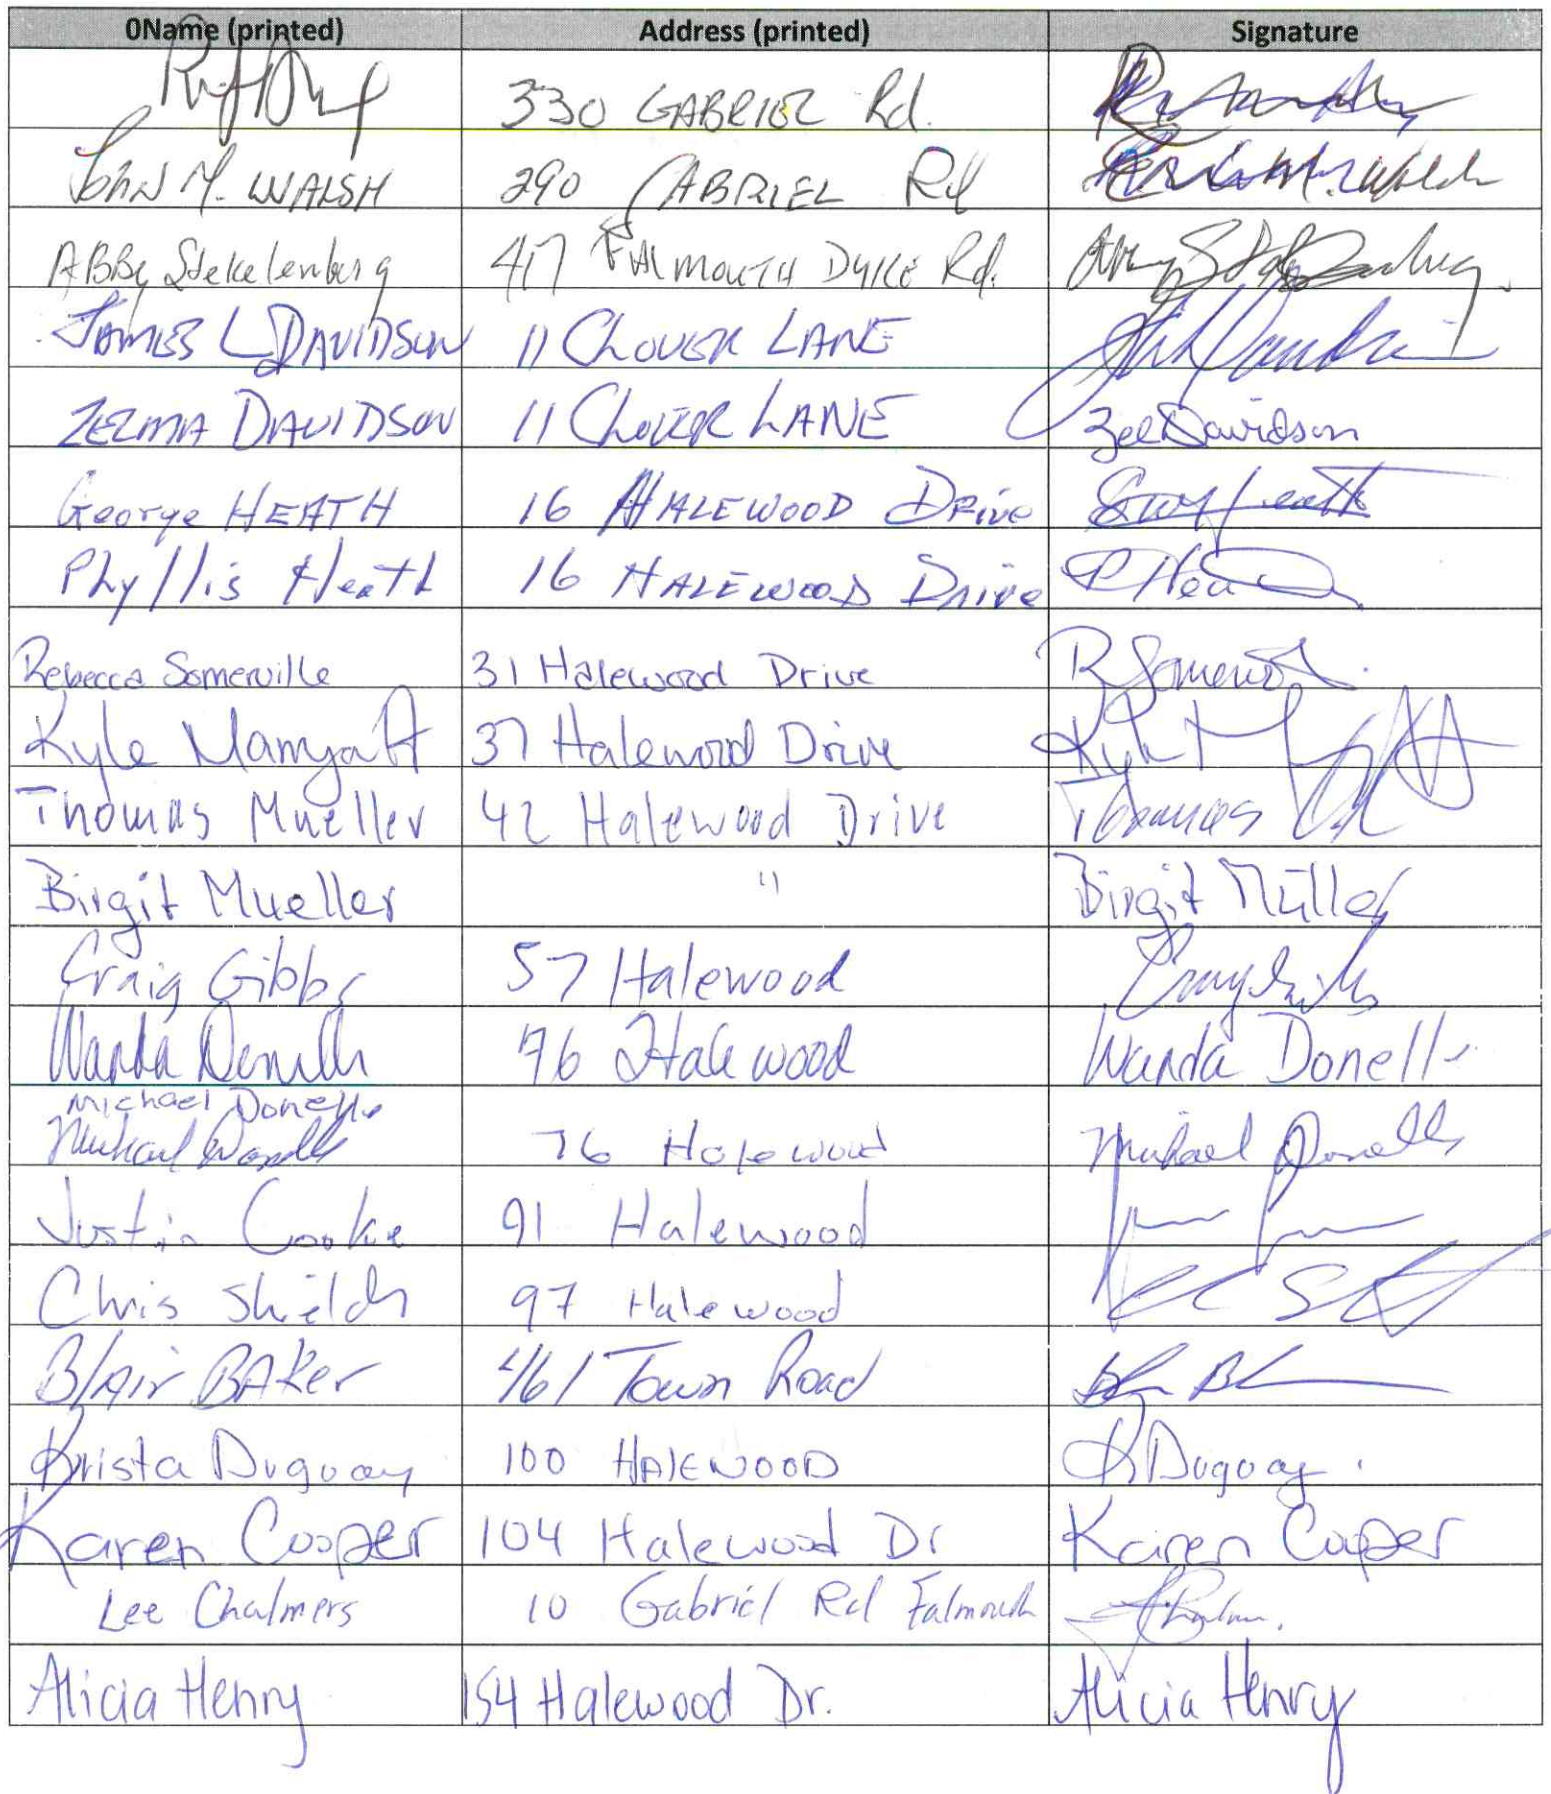 0Name (printed) Address (printed) Signature
330 GABRIEL Rd.
JOHN M. WALSH 290 GABRIEL Rd
ABBy Stekelenburg 417 FALMOUTH DYKE Rd.
JAMES L DAVIDSON 11 CLOVER LANE
ZELMA DAVIDSON 11 CLOVER LANE Zel Davidson
George HEATH 16 HALEWOOD Drive
Phyllis Heath 16 HALEWOOD Drive P Heath
Rebecca Somerville 31 Halewood Drive R Somerville
Kyle Marryatt 37 Halewood Drive
Thomas Mueller 42 Halewood Drive Thomas
Birgit Mueller " Birgit Müller
Craig Gibbs 57 Halewood
Wanda Donelle 76 Halewood Wanda Donelle
Michael Donelle
Michael Donelle 76 Halewood Michael Donelle
Justin Cooke 91 Halewood
Chris Shields 97 Halewood
Blair BAKer 461 Town Road
Krista Duguay 100 HALEWOOD K Duguay
Karen Cooper 104 Halewood Dr Karen Cooper
Lee Chalmers 10 Gabriel Rd Falmouth
Alicia Henry 154 Halewood Dr. Alicia Henry